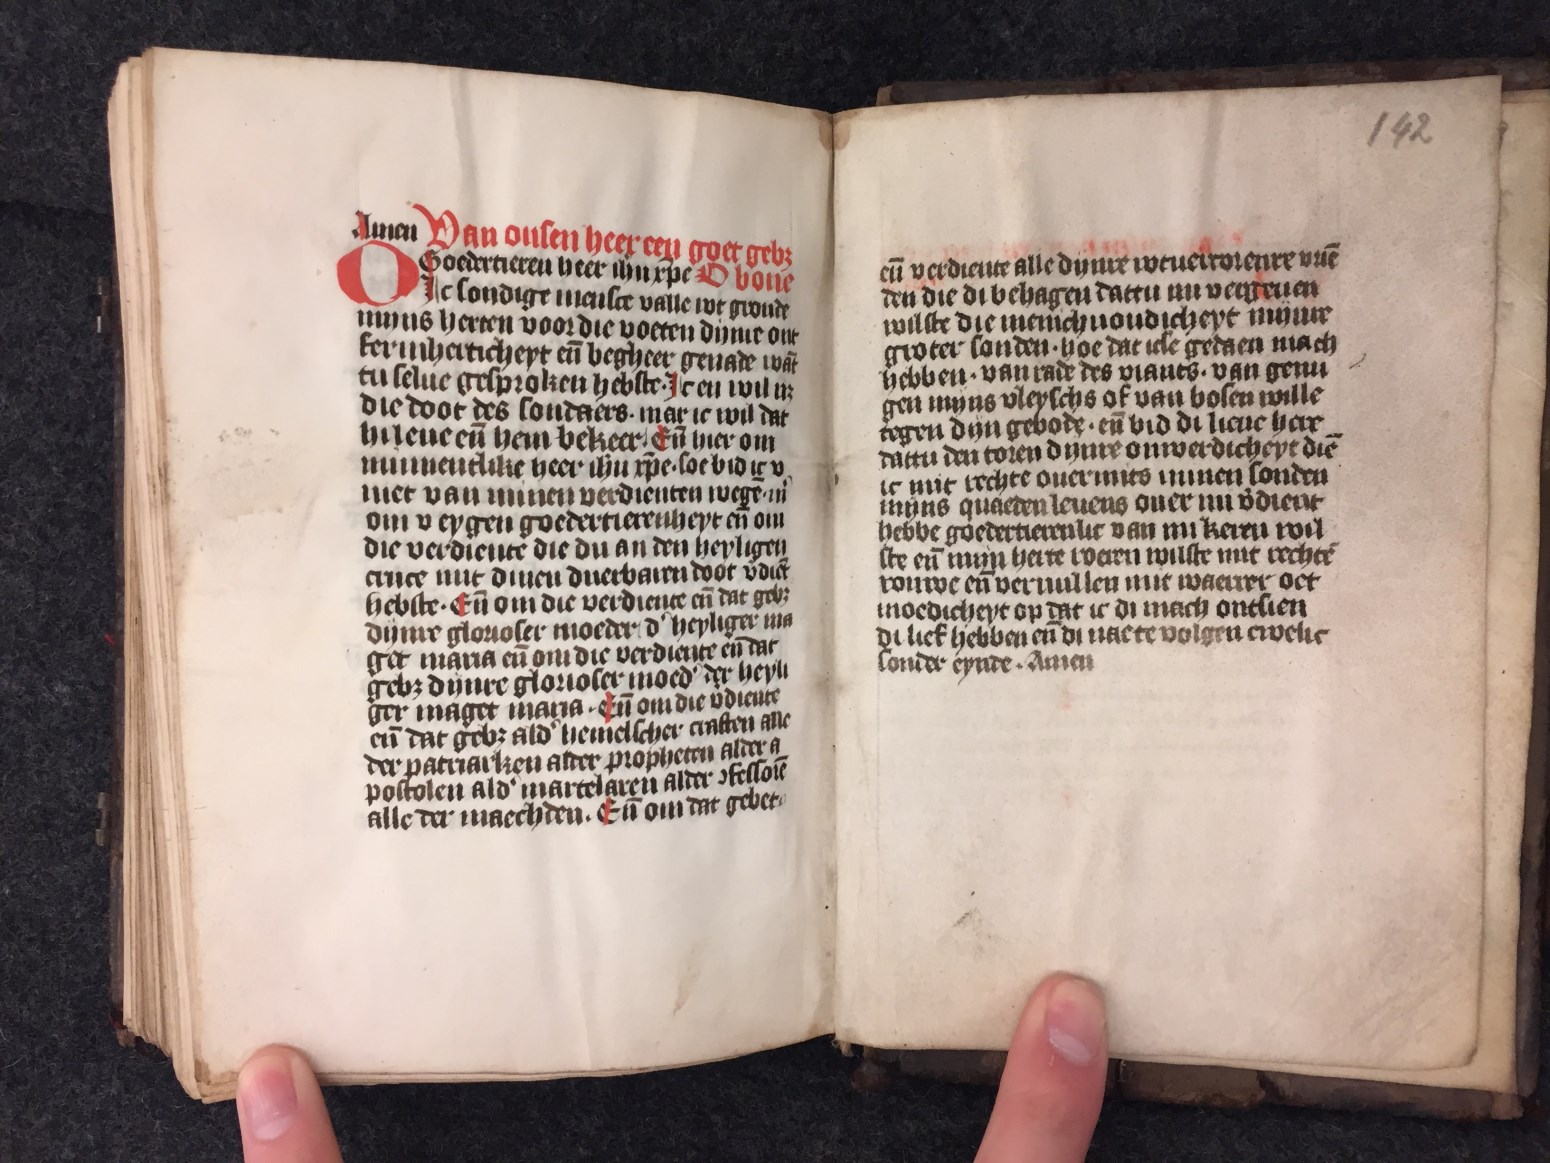 Amen Van onsen heer een goet gebꝫ
O Goedertieren heer ihū xp̄e O bone
Ic sondige mensce valle wt gronde
mijns herten voor die voeten dijnre ont
fermherticheyt eñ begheer genade wāt
tu selue gesproken hebste. Ic en wil nz
die doot des sondaers. mar ic wil dat
hi leue eñ hem bekeer. Eñ hier om
minnentlike heer ihū xp̄e. soe bid ic v
niet van minen verdienten wegē. m̄
om v eygen goedertierenheyt eñ om
die verdiente die du an den heyligen
cruce mit dinen duerbaren doot v̄diēt
hebste. Eñ om die verdiente eñ dat gebꝫ
dijnre glorioser moeder d' heyliger ma
get maria eñ om die verdiente eñ dat
gebꝫ dijnre glorioser moed' der heyli
ger maget maria. Eñ om die v̄diente
eñ dat gebꝫ ald' hemelscher craften alle
der patriarken alter propheten alder a
postolen ald' martelaren alder ɔfessorē
alle der maechden. Eñ om dat gebet
142
eñ verdiente alle dijnre wtuercorenre vriē
den die di behagen dattu mi vergeuen
wilste die menichuoudicheyt mijnre
groter sonden. hoe dat icse gedaen mach
hebben. van rade des viants. van genu
gen mijns vleyschs of van bosen wille
tegen dijn gebode. eñ bid di lieue here
dattu den toren dijnre onwerdicheyt diē
ic mit rechte ouermits minen sonden
mijns quaeden leuens ouer mi v̄dient
hebbe goedertierenlic van mi keren wil
ste eñ mijn herte roeren wilste mit rechtē
rouwe eñ veruullen mit waerre oet
moedicheyt op dat ic di mach ontsien
di lief hebben eñ di nae te volgen ewelic
sonder eynde. Amen